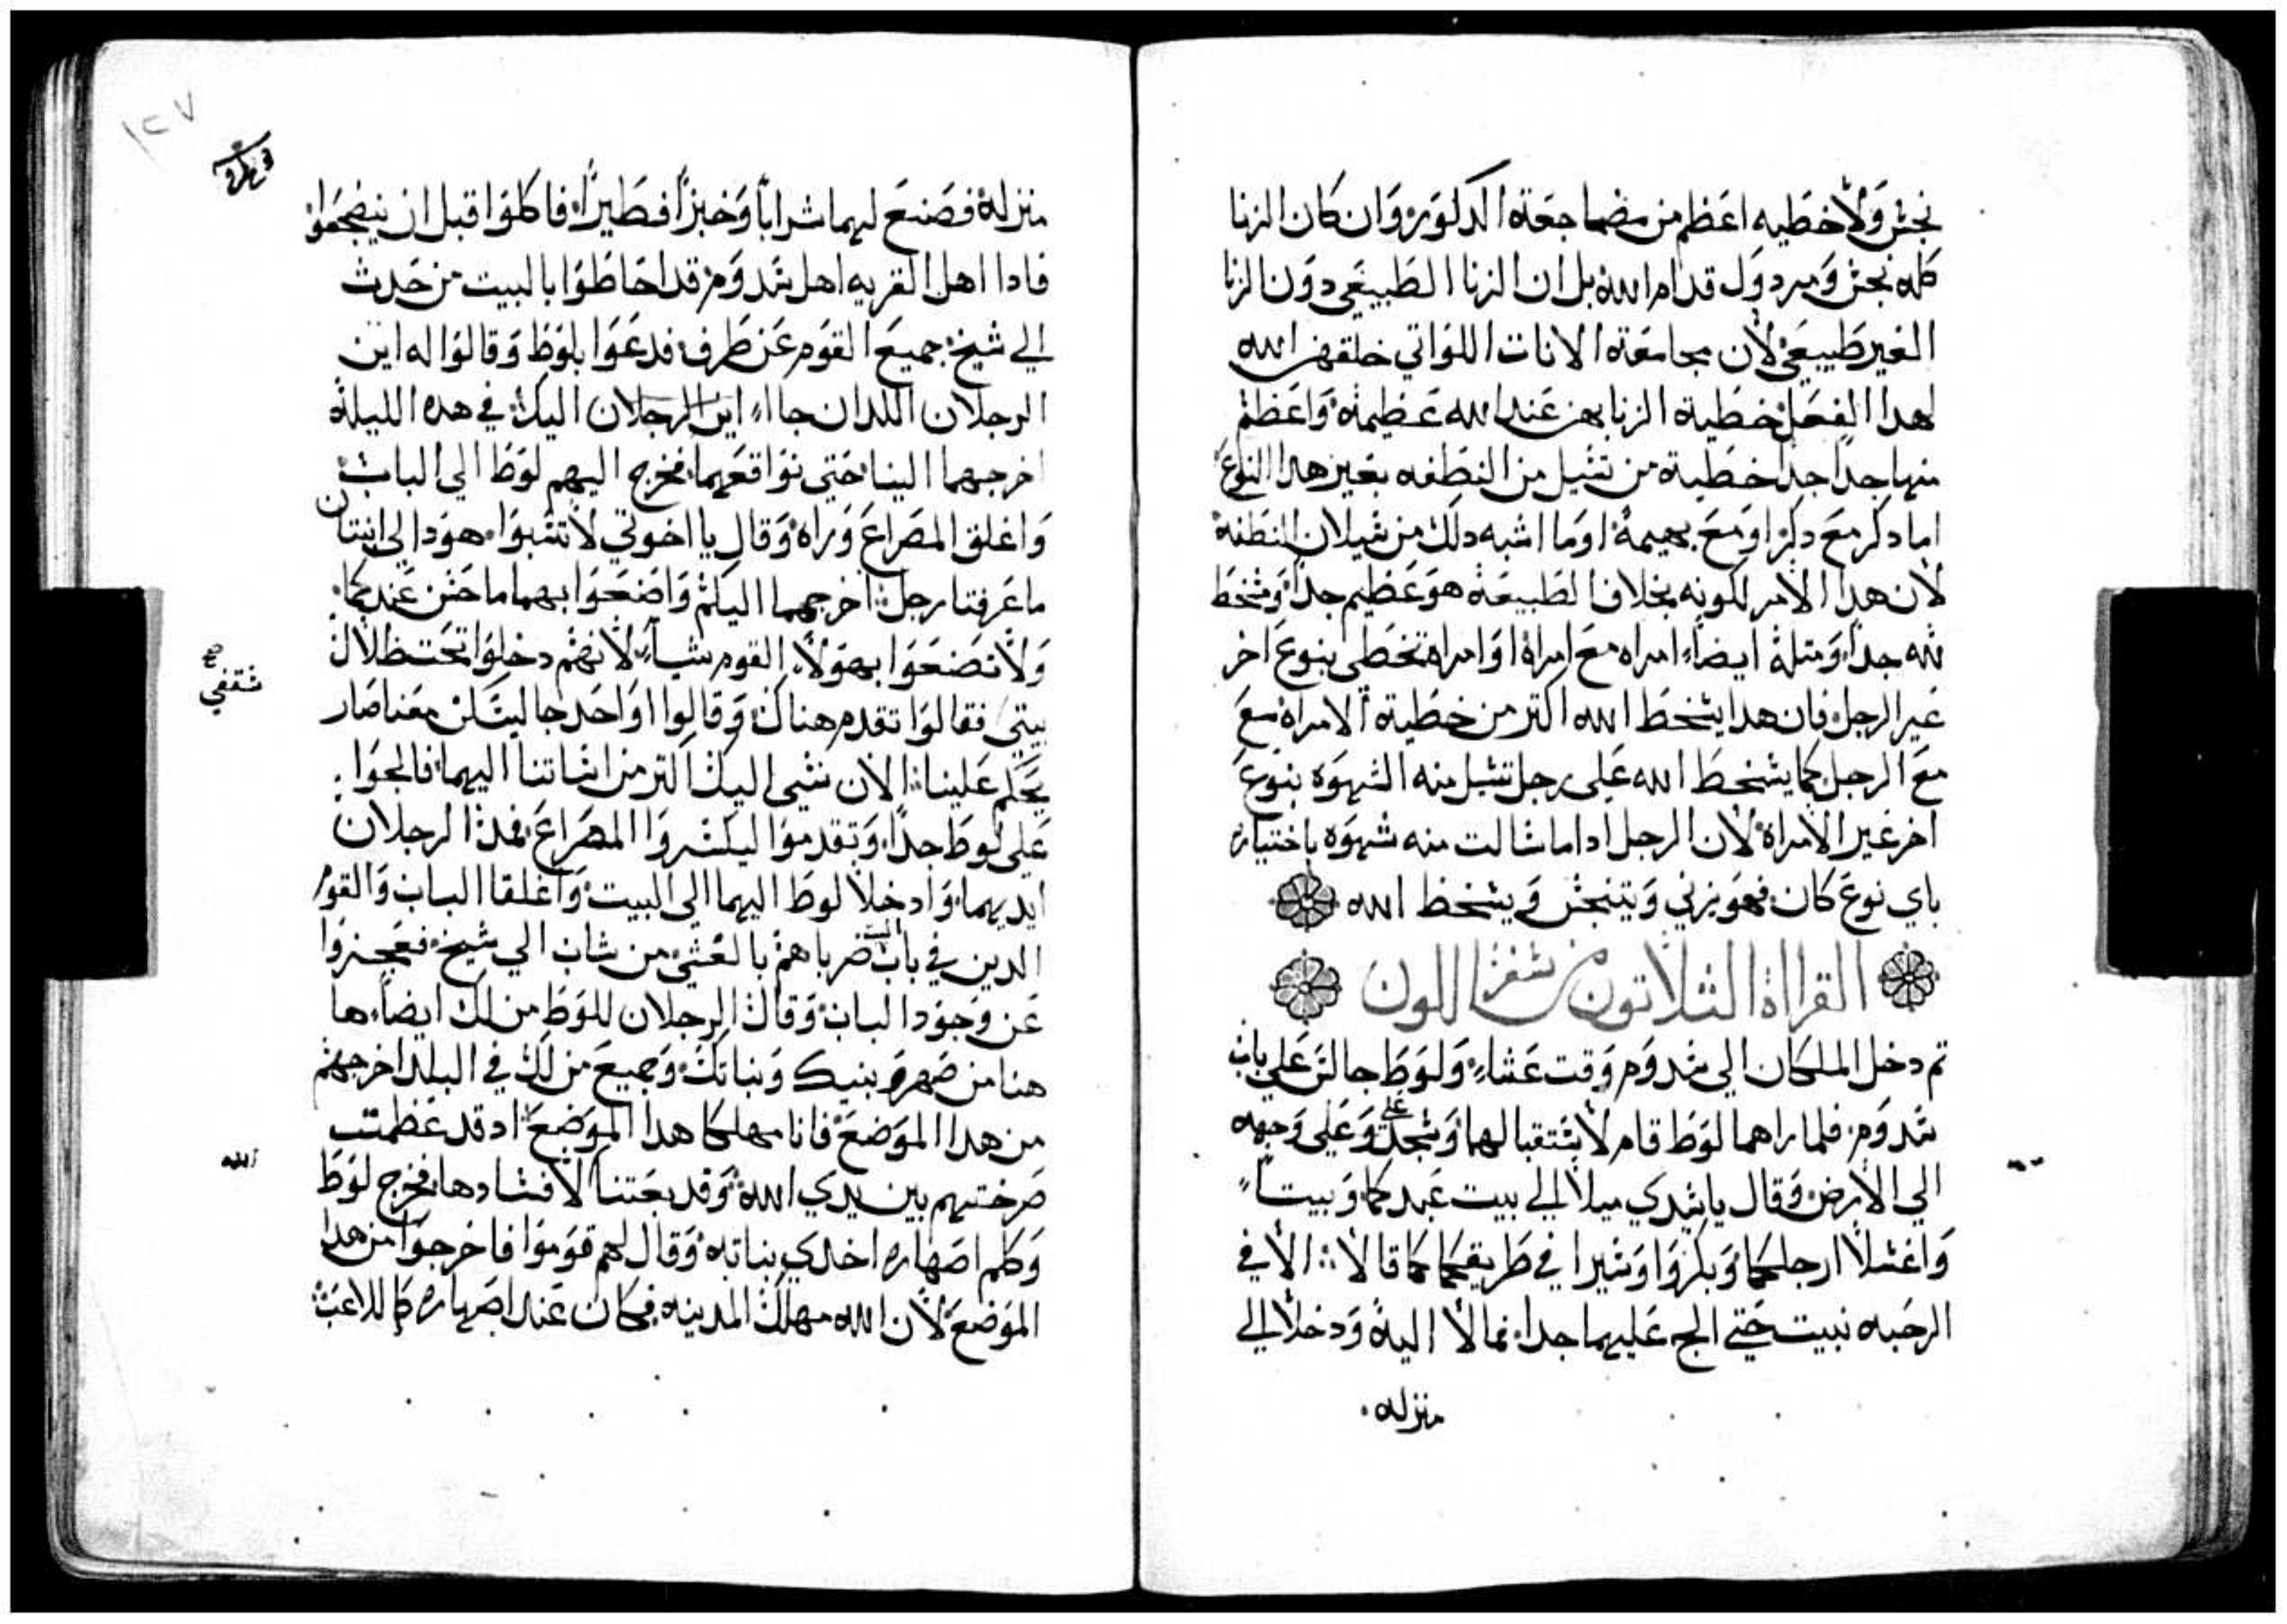 نجس ولا خطيه اعظم من مضاجعة الدكور وان كان الزنا
كله نجس ومردول قدام الله بل ان الزنا الطبيعي دون الزنا
الغير طبيعي لان مجامعة الانات اللواتي خلقهن الله
لهدا الفعل خطية الزنا بهن عند الله عظيمة واعظم
منها جدا جدا خطية من تسيل من النطفه بغير هدا النوع
اما دكر مع دكر او مع بهيمة او ما اشبه دلك من سيلان النطفة
لان هدا الامر لكونه بخلاف الطبيعة هو عظيم جدا ومسخط
لله جدا ومتلة ايضا امراه مع امراة او امراه تخطي بنوع اخر
غير الرجل فان هدا يسخط الله اكتر من خطية الامراة مع
مع الرجل كما يسخط الله على رجل تسيل منه الشهوه بنوع
اخر غير الامراة لان الرجل ادا ما سالت منه شهوه باختياره
باي نوع كان فهو يزني ويتنجس ويسخط الله
القراة الثلاتون من سفر اللون
تم دخل الملكان الى سدوم وقت عشاء ولوط جالس على باب
سدوم فلما راهما لوط قام لاستقبالهما وسجد على وعلى وجهه
الي الارض وقال يا سيدي ميلا الى بيت عبدكما وبيتا
واغسلا ارجلكما وبكروا وسيرا في طريقكما كما قالا الا في
الرحبه نبيت حتى الج عليهما جدا فمالا الية ودخلا الى
منزله
١٢٧
منزلة فصنع لهما شرابا وخبزا فطيرا فاكلوا قبل ان ينضجعوا
فادا اهل القريه اهل سدوم قد احاطوا بالبيت من حدث
الي شيخ جميع القوم عن طرف فدعوا بلوط وقالوا له اين
الرجلان اللدان جاا اين الرجلان اليك في هده الليلة
اخرجهما الينا حتى نواقعهما فخرج اليهم لوط الى الباب
واغلق المصراع وراه وقال يا اخوتي لا تسبوا هودا لي ابنتان
ما عرفتا رجل اخرجهما اليكم واضعوا بهما ما حسن عندكما
ولا تصنعوا بهولاء القوم شياء لانهم دخلوا تحت ظلال
سقفي
بيتي فقالوا تقدم هناك وقالوا واحد جا ليسكن معنا صار
يحكم علينا الان نسي اليك اكتر من اساتنا اليهما فالجوا
على لوط جدا وتقدموا ليكسروا المصراع فمد الرجلان
ايديهما وادخلا لوط اليهما الى البيت واغلقا الباب والقوم
الدين في باب البيت ضرباهم بالعشي من شاب الي شيخ فعجزوا
عن وجود الباب وقال الرجلان للوط من لك ايضا هاـ
هنا من صهر وبنيك وبناتك وجميع من لك في البلد اخرجهم
من هدا الموضع فانا مهلكا هدا الموضع اد قد عظمت
صرختهم بين يدي الله وقد بعتنا لافسادها فخرج لوط
الله
وكلم اصهاره اخدي بناته وقال لهم قوموا فاخرجوا من هدا
الموضع لان الله مهلك المدينه فكان عند اصهاره كاللاعب